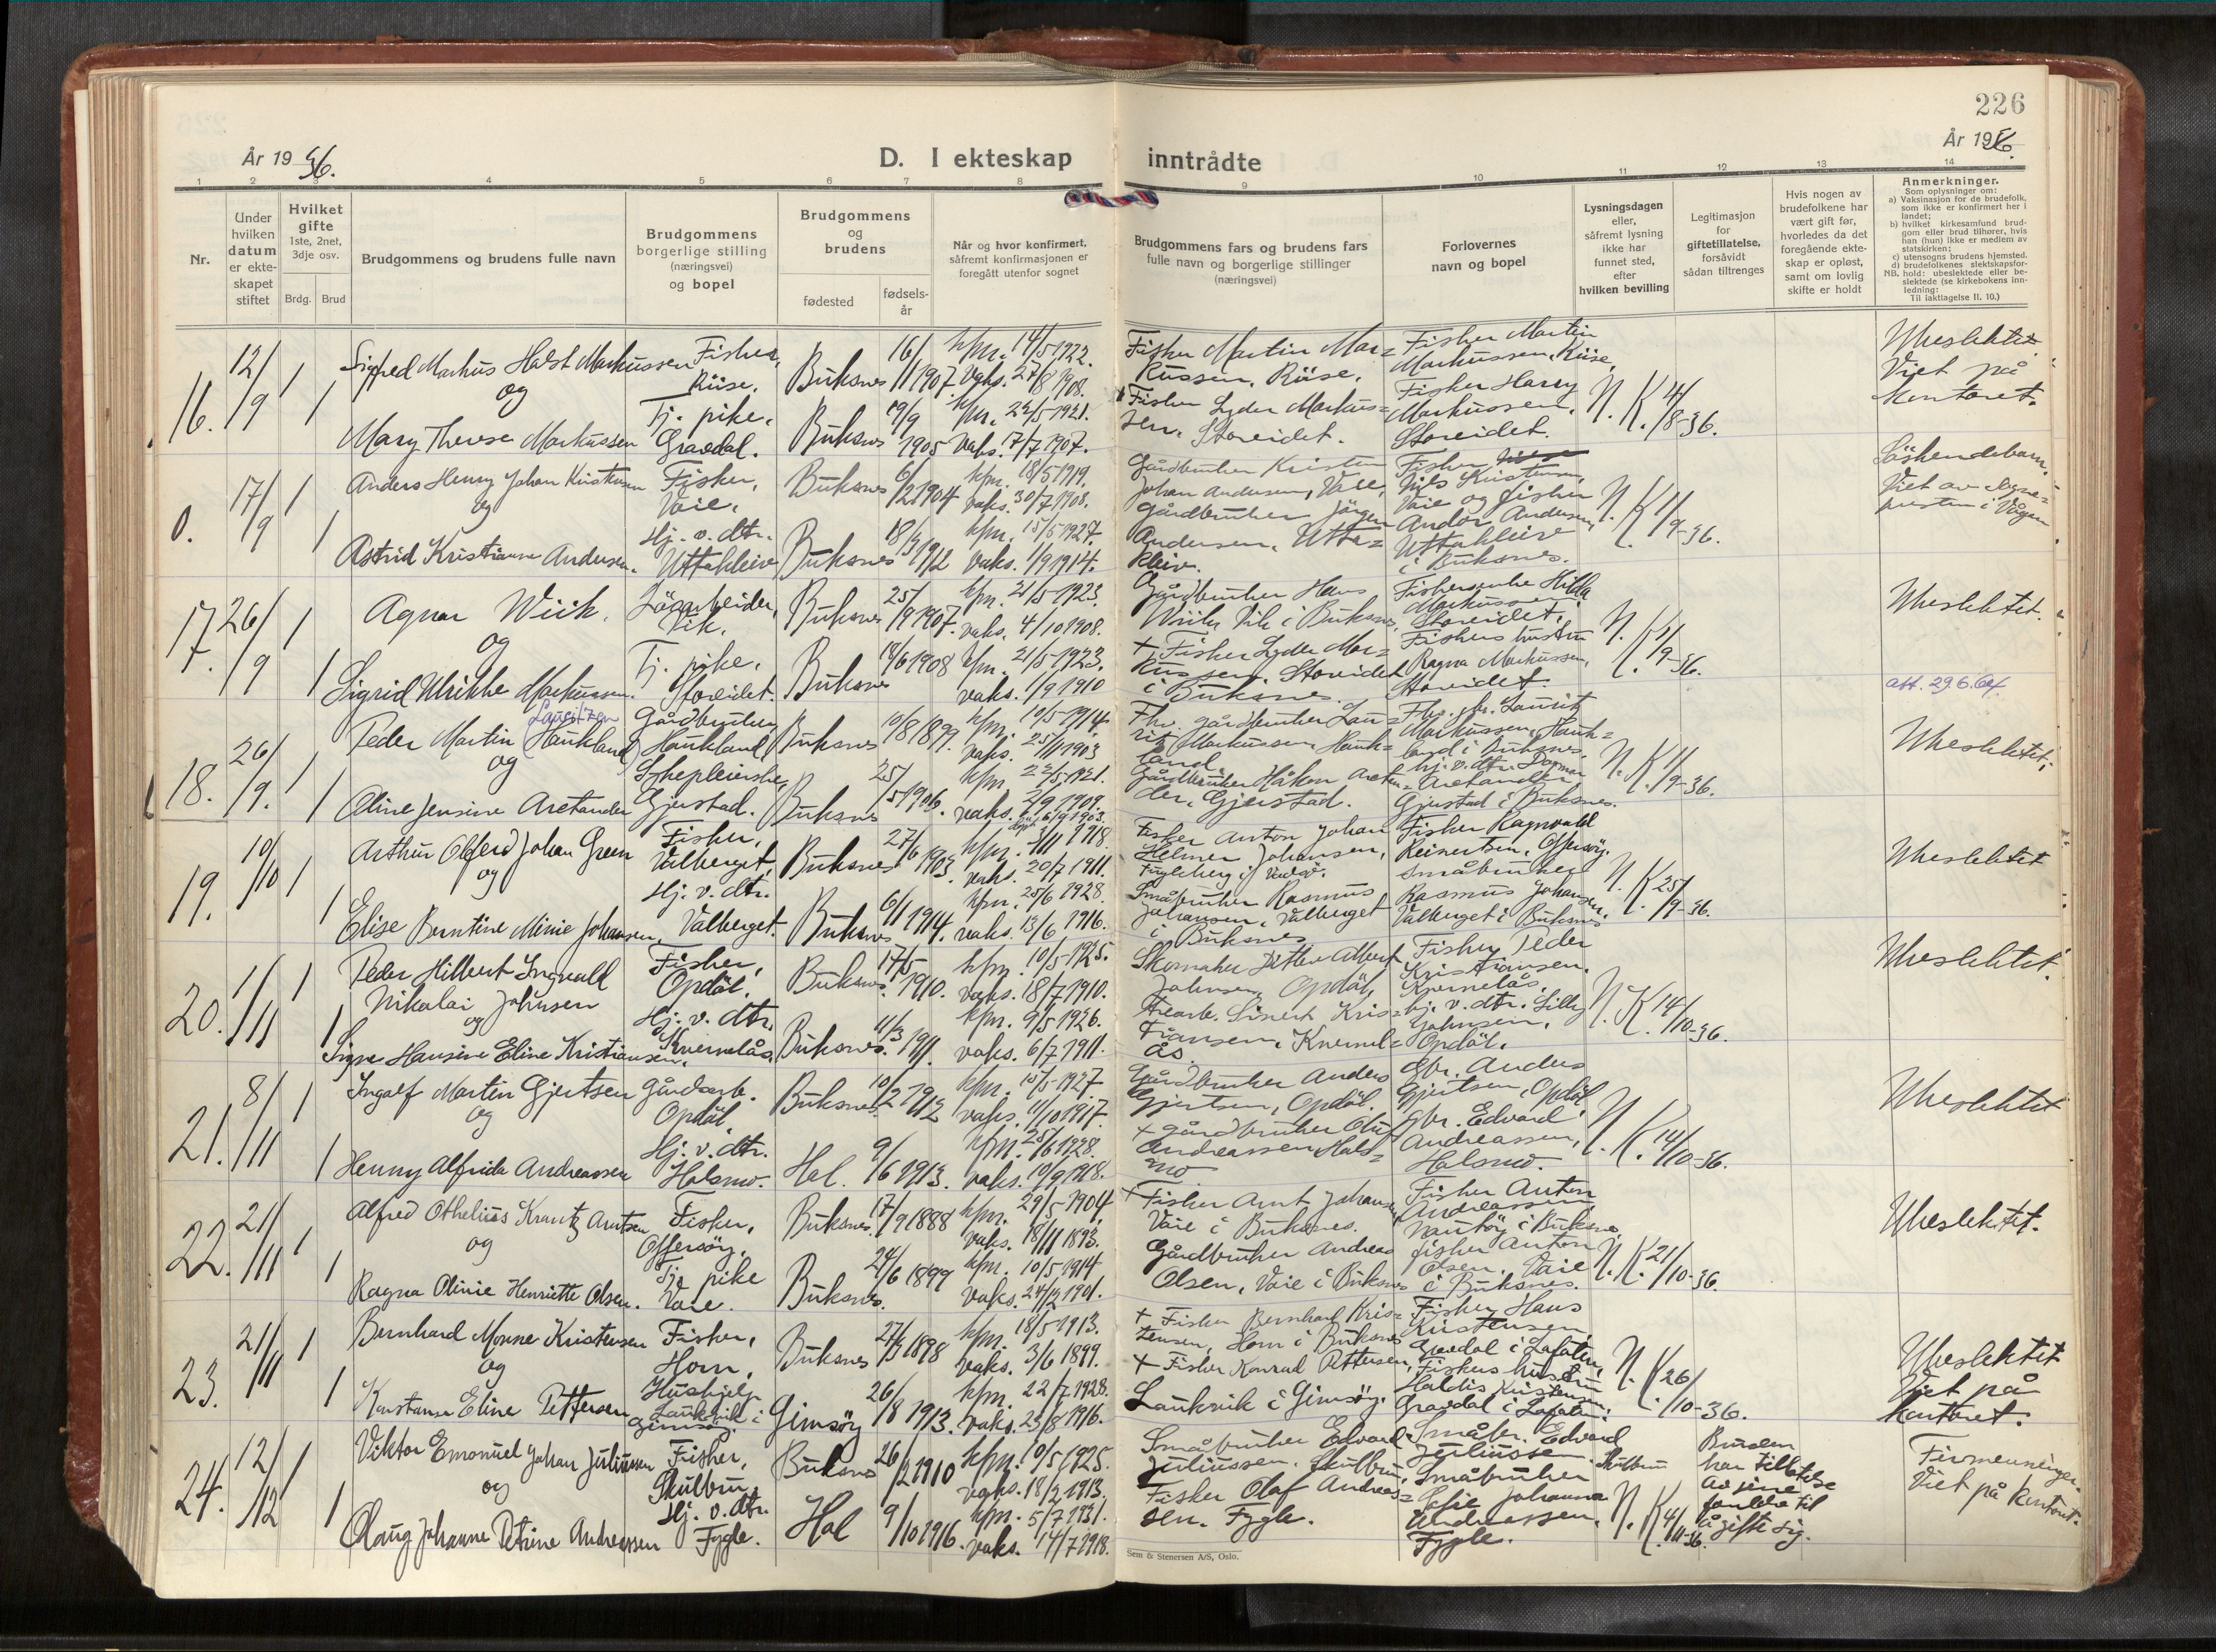 226
År 1936.
D. I ekteskap inntrådte
År 1936.
1 2 3 4 5 6 7 8 9 10 11 12 13 14
Nr.
Under hvilken datum er ekteskapet stiftet
Hvilket gifte
1ste, 2net, 3dje osv.
Brdg. Brud
Brudgommens og brudens fulle navn
Brudgommens borgerlige stilling (næringsvei) og bopel
Brudgommens og brudens
fødested
fødselsår
Når og hvor konfirmert, såfremt konfirmasjonen er foregått utenfor sognet
Brudgommens fars og brudens fars fulle navn og borgerlige stillinger (næringsvei)
Forlovernes navn og bopel
Lysningsdagen eller, såfremt lysning ikke har funnet sted, efter hvilken bevilling
Legitimasjon for giftetillatelse, forsåvidt sådan tiltrenges
Hvis nogen av brudefolkene har vært gift før, hvorledes da det foregående ekteskap er opløst, samt om lovlig skifte er holdt
Anmerkninger.
Som oplysninger om:
a) Vaksinasjon for de brudefolk, som ikke er konfirmert her i landet;
b) hvilket kirkesamfund brudgom eller brud tilhører, hvis han (hun) ikke er medlem av statskirken;
c) utensogns brudens hjemsted.
d) brudefolkenes slektskapsforhold: ubeslektede eller beslektede (se kirkebokens innledning:
NB.
Til iakttagelse II. 10.)
16. 12/9 1 Sigfred Markus Holst Markussen Fisker, Rüse. Buksnes 16/11 1907. kfm. 14/5 1922. vaks. 27/8 1908.
og
1 Mary Therese Markussen Tj. pike, Gravdal. Buksnes 19/9 1905 kfm. 22/5 1921. vaks. 7/7 1907.
Fisker Martin Markussen, Rüse.
Fisker Lyder Markussen. Storeidet.
Fisker Martin Markussen, Rüse,
Fisker Harry Markussen, Storeidet.
N. K. 4/8-36.
Ubeslektet. Viet på kontoret.
0. 17/9 1 Anders Henry Johan Kristensen Fisker, Vaie. Buksnes 6/2 1904 kfm. 18/5 1919. vaks. 30/7 1908.
og
1 Astrid Kristianne Andersen. Hj. v. dtr. Uttakleiv Buksnes 18/3 1912 kfm. 15/5 1927. vaks. 1/9 1914.
Gårdbruker Kristen Johan Andersen, Vaie,
gårdbruker Jörgen Andersen, Uttakleiv.
Fisker Nils Kristensen, Vaie og fisker Andor Andersen, Uttakleiv i Buksnes.
N. K. 1/9-36.
Søskendebarn. Viet av sognepresten i Vågan
17. 26/9 1 Agnar Wiik. Løsarbeider, Vik. Buksnes 25/9 1907. kfm. 21/5 1923. vaks. 4/10 1908.
og
1 Sigrid Ulrikke Markussen. Tj. pike, Storeidet. Buksnes 14/6 1908 kfm. 21/5 1923. vaks. 1/9 1910
Gårdbruker Hans Wiik, Vik i Buksnes,
+ Fisker Lyder Markussen, Storeidet i Buksnes.
Fiskerenke Hilda Markussen, Storeidet.
Fiskers hustru Ragna Markussen, Storeidet.
N. K. 1/9-36.
Ubeslektet.
att. 29.6.64.
18. 26/9. 1 Peder Martin (Haukland) Lauritzen Gårdbruker, Haukland Buksnes 10/8 1899. kfm. 10/5 1914. vaks. 25/11 1903
og
1 Oline Jensine Arctander Sykepleierske, Gjerstad. Buksnes 25/5 1906. kfm. 22/5 1921. vaks. 2/9 1909.
Fhv. gårdbruker Laurits Markussen, Haukland.
Gårdbruker Håkon Arctander, Gjerstad.
Fhv. gbr. Laurits Markussen, Haukland i Buksnes,
hj. v. dtr. Dagmar Arctander Gjerstad i Buksnes.
N. K. 1/9-36.
Ubeslektet;
19. 10/10 1 Arthur Olferd Johan Green Fisker, Valberget, Buksnes 27/6 1903. kfm. 3/11 1918. vaks. 20/7 1911.
og
1 Elise Berntine Minie Johansen. Hj. v. dtr. Valberget. Buksnes 6/11 1914. kfm. 25/6 1928. vaks. 13/6 1916.
Fisker Anton Johan Helmer Johansen,
Småbruker Rasmus Johansen, Valberget i Buksnes
Fisker Ragnvald Reinertsen, Offersøy.
Småbruker Rasmus Johansen, Valberget i Buksnes
N. K. 25/9-36.
Ubeslektet
20. 1/11 1 Peder Hilbert Ingvald Nikolai Johnsen Fisker, Opdøl. Buksnes 17/5 1910. kfm. 10/5 1925. vaks. 18/7 1910.
og
1 Signe Hansine Eline Kristiansen, Hj. v. dtr. Kvernelås. Buksnes. 11/3 1911. kfm. 9/5 1926. vaks. 6/7 1911.
Skomaker Ditlev Albert Johnsen, Opdøl,
Trearb. Sivert Kristiansen, Kvernelås
Fisker Peder Kristiansen, Kvernelås,
hj. v. dtr. Lilly Johnsen, Opdøl.
N. K. 14/10-36.
Ubeslektet.
21. 8/11 1 Ingolf Martin Gjertsen Gårdsarb. Opdøl. Buksnes 10/2 1912 kfm. 15/5 1927. vaks. 11/10 1917.
og
1 Henny Alfrida Andreassen Hj. v. dtr. Holsmo. Hol. 9/6 1913. kfm. 25/6 1928. vaks. 10/9 1918.
Gårdbruker Anders Gjertsen, Opdøl.
+ gårdbruker Oluf Andreassen Holsmo
Gbr. Anders Gjertsen, Opdøl,
gbr. Edvard Andreassen, Holsmo.
N. K. 14/10-36.
Ubeslektet
22. 21/11 1 Alfred Othelius Krantz Arntsen Fisker, Offersøy. Buksnes. 17/9 1888 kfm. 29/5 1904. vaks. 18/11 1893.
og
1 Ragna Olinie Henriette Olsen. Tj. pike Vaie. Buksnes. 24/6 1899 kfm. 10/5 1914 vaks. 24/2 1901.
+ Fisker Arnt Johansen, Vaie i Buksnes.
Gårdbruker Andreas Olsen, Vaie i Buksnes
Fisker Anton Andreassen i Buksnes.
fisker Anton Olsen, Vaie i Buksnes.
N. K. 21/10-36.
Ubeslektet.
23. 21/11 1 Bernhard Monne Kristensen Fisker, Horn, Buksnes 27/3 1898 kfm. 18/5 1913. vaks. 3/6 1899.
og
1 Konstanse Eline Pettersen Hushjelp Laukvik i Gimsøy. Gimsøy 26/8 1913. kfm. 22/7 1928. vaks. 23/8 1916.
+ Fisker Bernhard Kristensen, Horn i Buksnes
+ Fisker Konrad Pettersen, Laukvik i Gimsøy.
Fisker Hans Kristensen Gravdal i Lofoten,
Fiskers hustru Haldis Kristensen Gravdal i Lofoten.
N. K. 26/10-36.
Ubeslektet Viet på kontoret.
24. 12/12 1 Viktor Emanuel Johan Juliussen Fisker, Skulbru, Buksnes 26/2 1910 kfm. 10/5 1925. vaks. 18/2 1913.
og
1 Olaug Johanne Petrine Andreassen Hj. v. dtr. Fygle. Hol 9/10 1916. kfm. 5/7 1931. vaks. 14/7 1918.
Småbruker Edvard Juliussen. Skulbru.
Fisker Olaf Andreassen. Fygle.
Småbr. Edvard Juliussen. Skulbru
Småbruker Johanna Andreassen, Fygle.
N. K. 4/11-36.
Bruden har tillatelse av sine foreldre til å gifte sig.
Firmenninger. Viet på kontoret.
Sem & Stenersen A/S, Oslo.